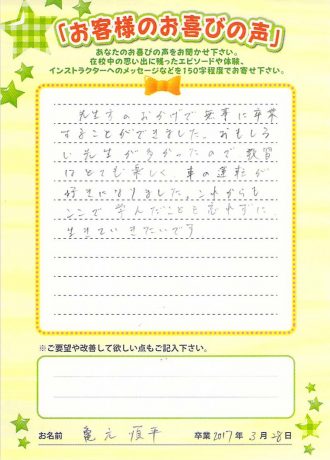 「お客様のお喜びの声」
あなたのお喜びの声をお聞かせ下さい。
在校中の思い出に残ったエピソードや体験、
インストラクターへのメッセージなどを150字程度でお寄せ下さい。
先生方のおかげで無事に卒業
することができました。おもしろ
い先生が多かったので教習
はとても楽しく 車の運転が
好きになりました。これからも
ここで学んだことを忘れずに
生きていきたいです
※ご要望や改善して欲しい点もご記入下さい。
お名前 亀元 慎平 卒業 2017年 3月 28日